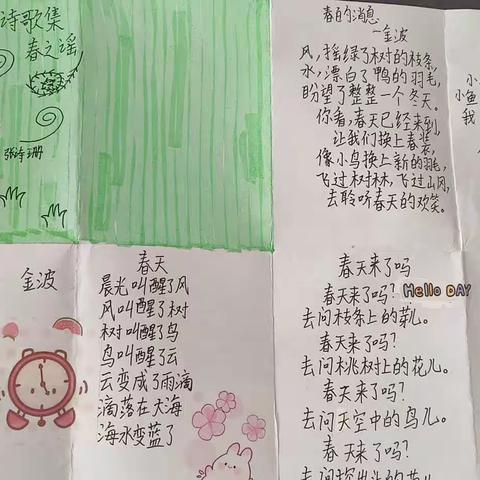 诗歌集
春之谣
张诗珊
春的消息
—金波
风,摇绿了树的枝条,
水,漂白了鸭的羽毛,
盼望了整整一个冬天。
你看,春天已经来到,
让我们换上春装,
像小鸟换上新的羽毛,
飞过树林,飞过山冈,
去聆听春天的欢笑。
小
小鱼
我
金波
春天
晨光叫醒了风
风叫醒了树
树叫醒了鸟
鸟叫醒了云
云变成了雨滴
滴落在大海
海水变蓝了
春天来了吗
春天来了吗?
Hello DAY
去问枝条上的芽儿。
春天来了吗?
去问桃树上的花儿。
春天来了吗?
去问天空中的鸟儿。
春天来了吗?